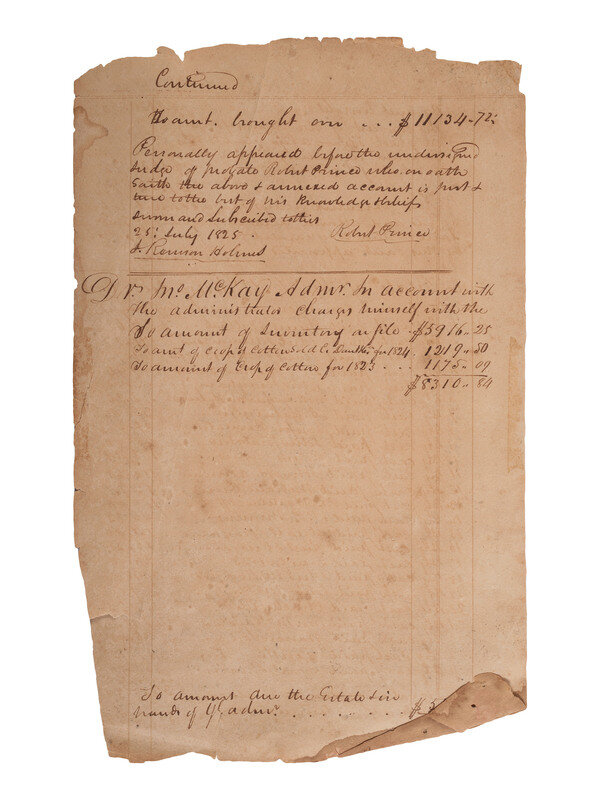 Continued
To amt. brought over ... $11134.72½
Personally appeared before the undersigned
Judge of probate Robert Prince who on oath
saith the above & annexed account is just &
true to the best of his knowledge & belief
sworn and Subscribed to this
25: July 1825. Robt Prince
Holmes
Dr. Mc.Kay Admr. In account with
the administrator charges himself with the
To amount of Inventory on file $5916.. 25
To amt of crop of Cotton sold for 1824. 1219.. 50
To amount of crop of Cotton for 1823 ... 1175.. 09
$8310.. 84
To amount due the Estate in
hands of Ye. admr. ........ $